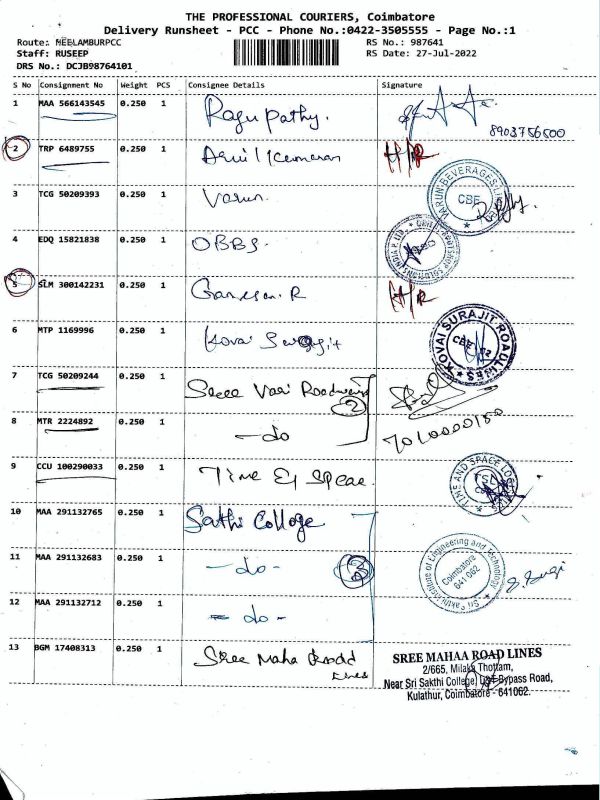 THE PROFESSIONAL COURIERS, Coimbatore
Delivery Runsheet - PCC - Phone No.:0422-3505555 - Page No.:1
Route: MEELAMBURPCC RS No.: 987641
Staff: RUSEEP RS Date: 27-Jul-2022
DRS No.: DCJB98764101
S No Consignment No Weight PCS Consignee Details Signature
1 MAA 566143545 0.250 1 Ragupathy.
8903756500
2 TRP 6489755 0.250 1 H/R
3 TCG 50209393 0.250 1 Varun. VARUN BEVERAGES CBE
4 EDQ 15821838 0.250 1 OBBS.
5 SLM 300142231 0.250 1 Ganesan. R H/R
6 MTP 1169996 0.250 1 Kovai KOVAI SURAJIT ROADLINES CBE
7 TCG 50209244 0.250 1 Sree
2
8 MTR 2224892 0.250 1 -do
9 CCU 100290033 0.250 1 Time & TIME AND SPACE TSL
10 MAA 291132765 0.250 1 Sathi College
11 MAA 291132683 0.250 1 -do- 3 of Engineering and Technology Coimbatore 641 062
12 MAA 291132712 0.250 1 -do-
13 BGM 17408313 0.250 1 Sree Maha Road
Lines
SREE MAHAA ROAD LINES
2/665, Milaka Thottam,
Near Sri Sakthi College, L&T Bypass Road,
Kulathur, Coimbatore - 641062.